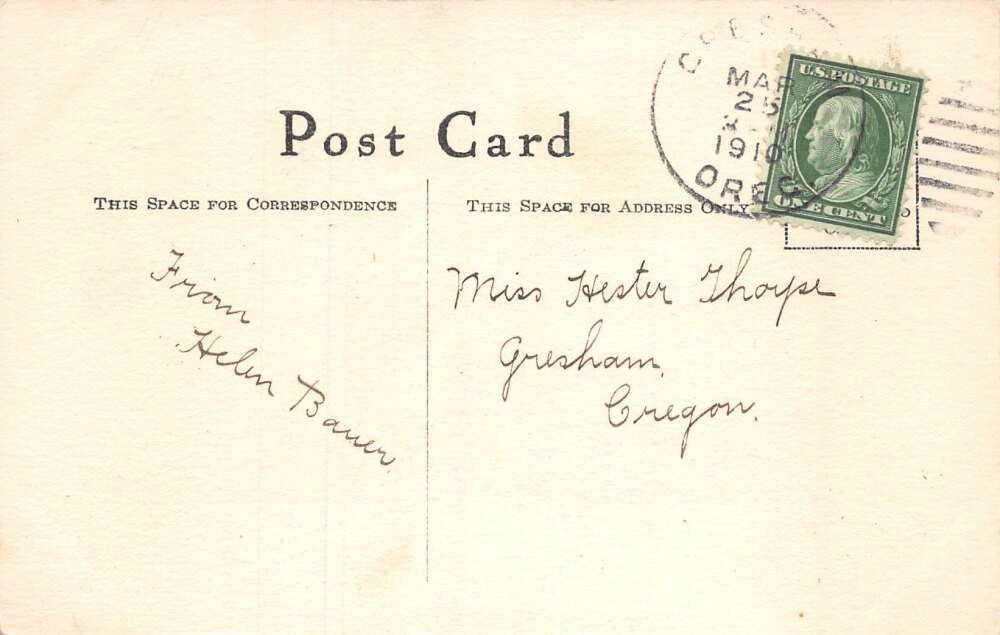 Post Card
THIS SPACE FOR CORRESPONDENCE
THIS SPACE FOR ADDRESS ONLY
MAR
25
1910
OREG
U.S. POSTAGE
ONE CENT
From
Helen Bauer.
Miss Hester Thorpe
Gresham,
Oregon.